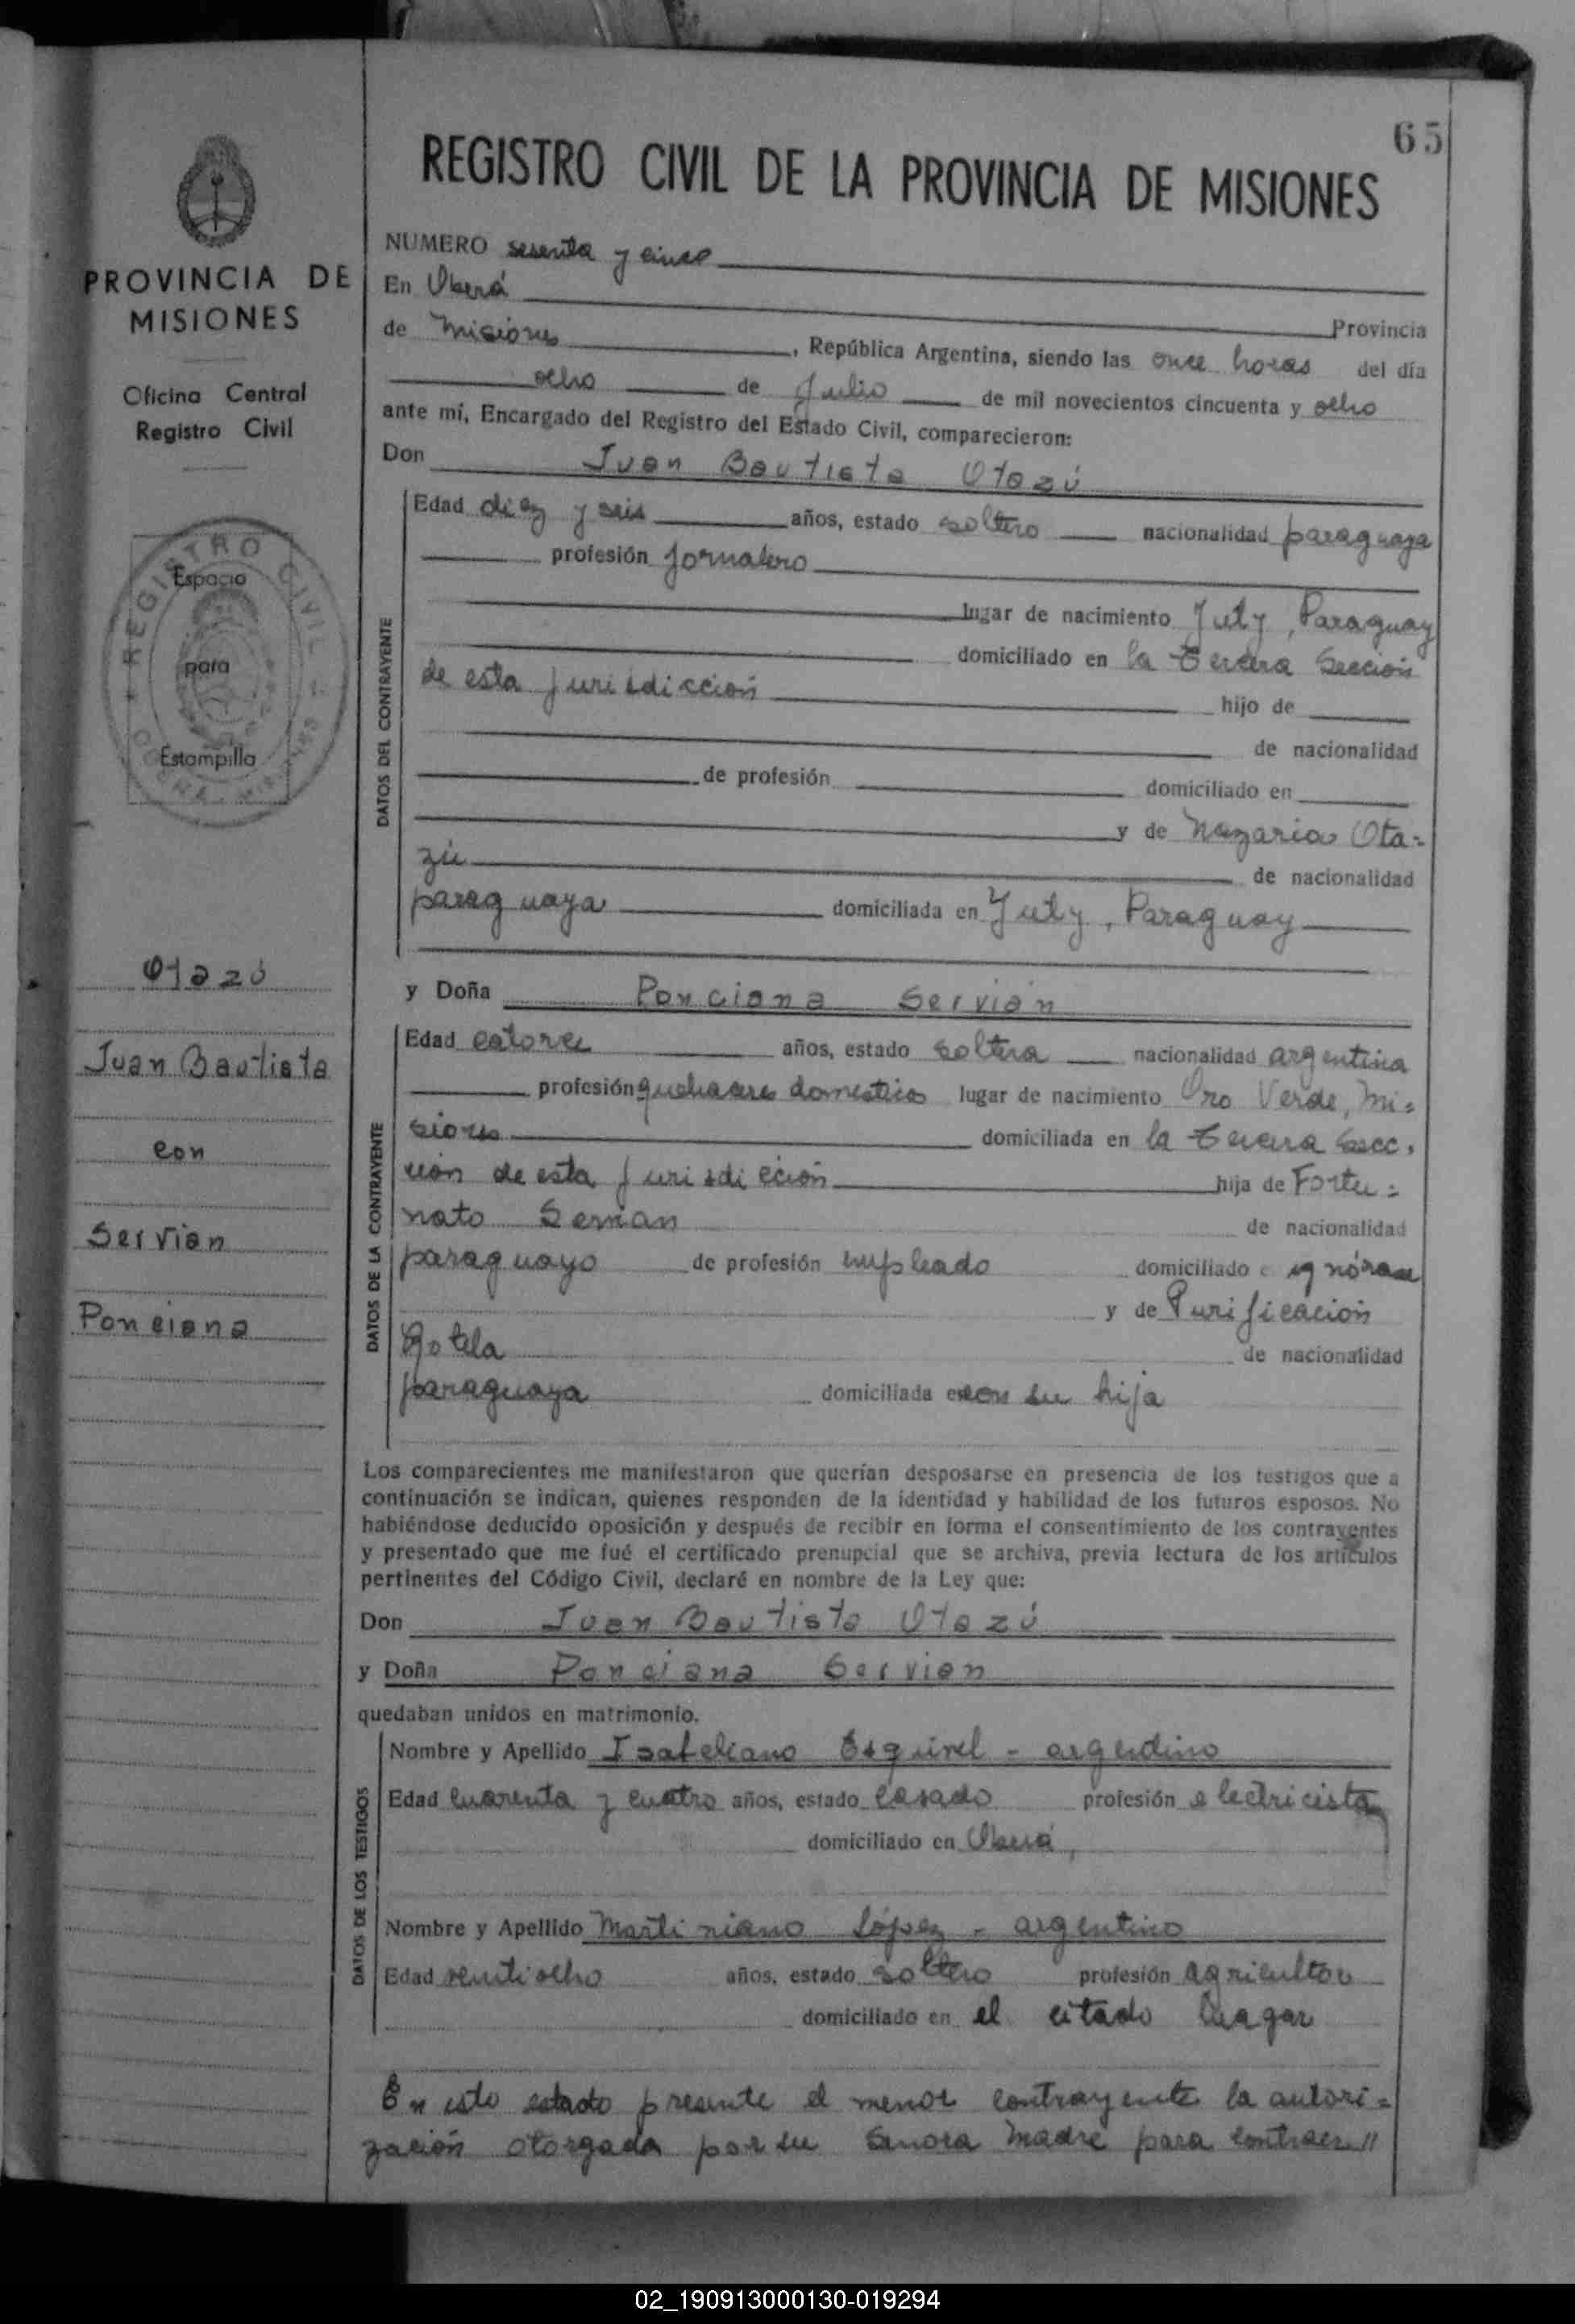 65
REGISTRO CIVIL DE LA PROVINCIA DE MISIONES
PROVINCIA DE
MISIONES
Oficina Central
Registro Civil
REGISTRO CIVIL
Espacio
para
Estampilla
OBERA - MISIONES
Otazú
Juan Bautista
con
Servian
Ponciana
NUMERO sesenta y cinco
En Oberá
Provincia
de Misiones, República Argentina, siendo las once horas del día
ocho de Julio de mil novecientos cincuenta y ocho
ante mí, Encargado del Registro del Estado Civil, comparecieron:
Don Juan Bautista Otazú
DATOS DEL CONTRAYENTE
Edad diez y seis años, estado soltero nacionalidad paraguaya
profesión jornalero
lugar de nacimiento Yuty, Paraguay
domiciliado en la tercera Sección
de esta jurisdicción hijo de
de nacionalidad
de profesión domiciliado en
y de Nazaria Ota=
zú de nacionalidad
paraguaya domiciliada en Yuty, Paraguay
y Doña Ponciana Servián
DATOS DE LA CONTRAYENTE
Edad catorce años, estado soltera nacionalidad argentina
profesión quehaceres domésticos lugar de nacimiento Oro Verde, Mi=
siones domiciliada en la tercera Secc.
ción de esta jurisdicción hija de Fortu=
nato Servian de nacionalidad
paraguayo de profesión empleado domiciliado e ignórase
y de Purificación
Rotela de nacionalidad
paraguaya domiciliada e con su hija
Los comparecientes me manifestaron que querían desposarse en presencia de los testigos que a
continuación se indican, quienes responden de la identidad y habilidad de los futuros esposos. No
habiéndose deducido oposición y después de recibir en forma el consentimiento de los contrayentes
y presentado que me fué el certificado prenupcial que se archiva, previa lectura de los artículos
pertinentes del Código Civil, declaré en nombre de la Ley que:
Don Juan Bautista Otazú
y Doña Ponciana Servian
quedaban unidos en matrimonio.
DATOS DE LOS TESTIGOS
Nombre y Apellido Esquivel - argentino
Edad cuarenta y cuatro años, estado casado profesión electricista
domiciliado en Oberá,
Nombre y Apellido Martiniano López - argentino
Edad veintiocho años, estado soltero profesión agricultor
domiciliado en el citado lugar
En este estado presente el menor contrayente la autori=
zación otorgada por su Señora Madre para contraer //
02_190913000130-019294